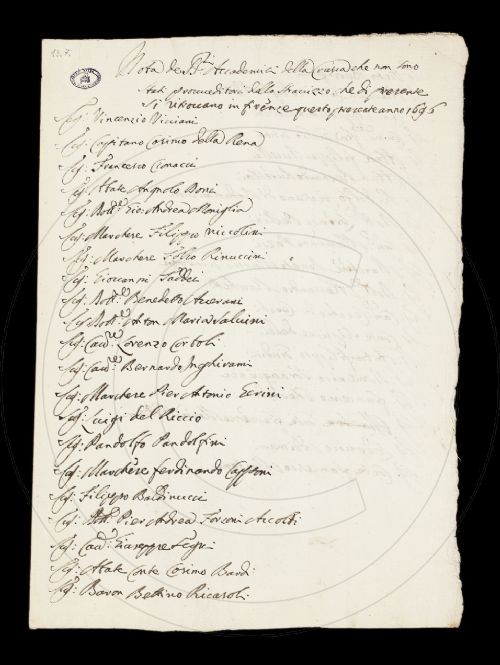 13.7.
Nota de SS.ri Accademici della Crusca che non sono
stati proveditori dello Stravizzo, che di presente
si ritrovano in firenze questo anno 1696
Sig: Vincenzio Viviani
Sig: Capitano Cosimo della Rena
Sig: Francesco Cionacci
Sig: Abate Angnolo
Sig: Dott.re Gio: Andrea Moniglia
Sig: Marchese Filippo Niccolini
Sig: Marchese Folco Rinuccini
Sig: Giovanni Taddei
Sig: Dott.re Benedetto Averani
Sig: Dott.re Anton Maria Salvini
Sig: Cav.re Lorenzo Corboli
Sig: Cav.re Bernardo Inghirami
Sig: Marchese Pier Antonio Gerini
Sig: Luigi del Riccio
Sig: Pandolfo Pandolfini
Sig: Marchese ferdinando Capponi
Sig: Filippo Baldinucci
Sig: Dott: Pier Andrea Forzoni Accolti
Sig: Cav: Giuseppe Segni
Sig: Abate Conte Cosimo Bardi
Sig: Baron Bettino Ricasoli